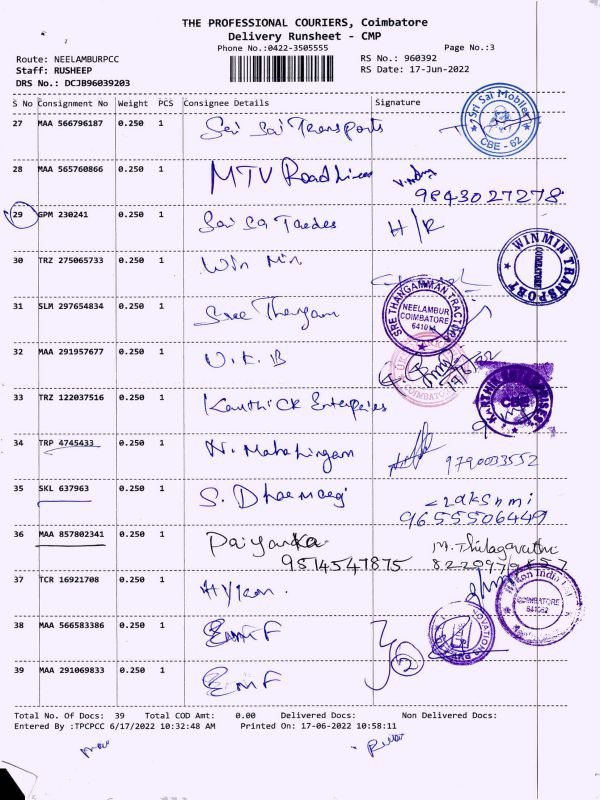 THE PROFESSIONAL COURIERS, Coimbatore
Delivery Runsheet - CMP
Phone No.:0422-3505555 Page No.:3
Route: NEELAMBURPCC RS No.: 960392
Staff: RUSHEEP RS Date: 17-Jun-2022
DRS No.: DCJB96039203
S No Consignment No Weight PCS Consignee Details Signature
27 MAA 566796187 0.250 1 Sai Sai Transports Sri Sai Mobiles CBE - 62
28 MAA 565760866 0.250 1 MTV Roadlines
9843027278
29 GPM 230241 0.250 1 H/R
30 TRZ 275065733 0.250 1 Win Min WINMIN TRANSPORT COIMBATORE
31 SLM 297654834 0.250 1 Sree Thangam SREE THANGAMMAN TRACTORS NEELAMBUR COIMBATORE
32 MAA 291957677 0.250 1 U.K.B COIMBATORE
33 TRZ 122037516 0.250 1 Enterprises KARTHIK ENTERPRISES CBE
34 TRP 4745433 0.250 1 N. Mahalingam 9790033552
35 SKL 637963 0.250 1 S. Dharmaraj Lakshmi
9655506449
36 MAA 857802341 0.250 1 Paiyanka M. Thilagavathi
9514547875
37 TCR 16921708 0.250 1 India COIMBATORE 641062
38 MAA 566583386 0.250 1
39 MAA 291069833 0.250 1 2
Total No. Of Docs: 39 Total COD Amt: 0.00 Delivered Docs: Non Delivered Docs:
Entered By :TPCPCC 6/17/2022 10:32:48 AM Printed On: 17-06-2022 10:58:11